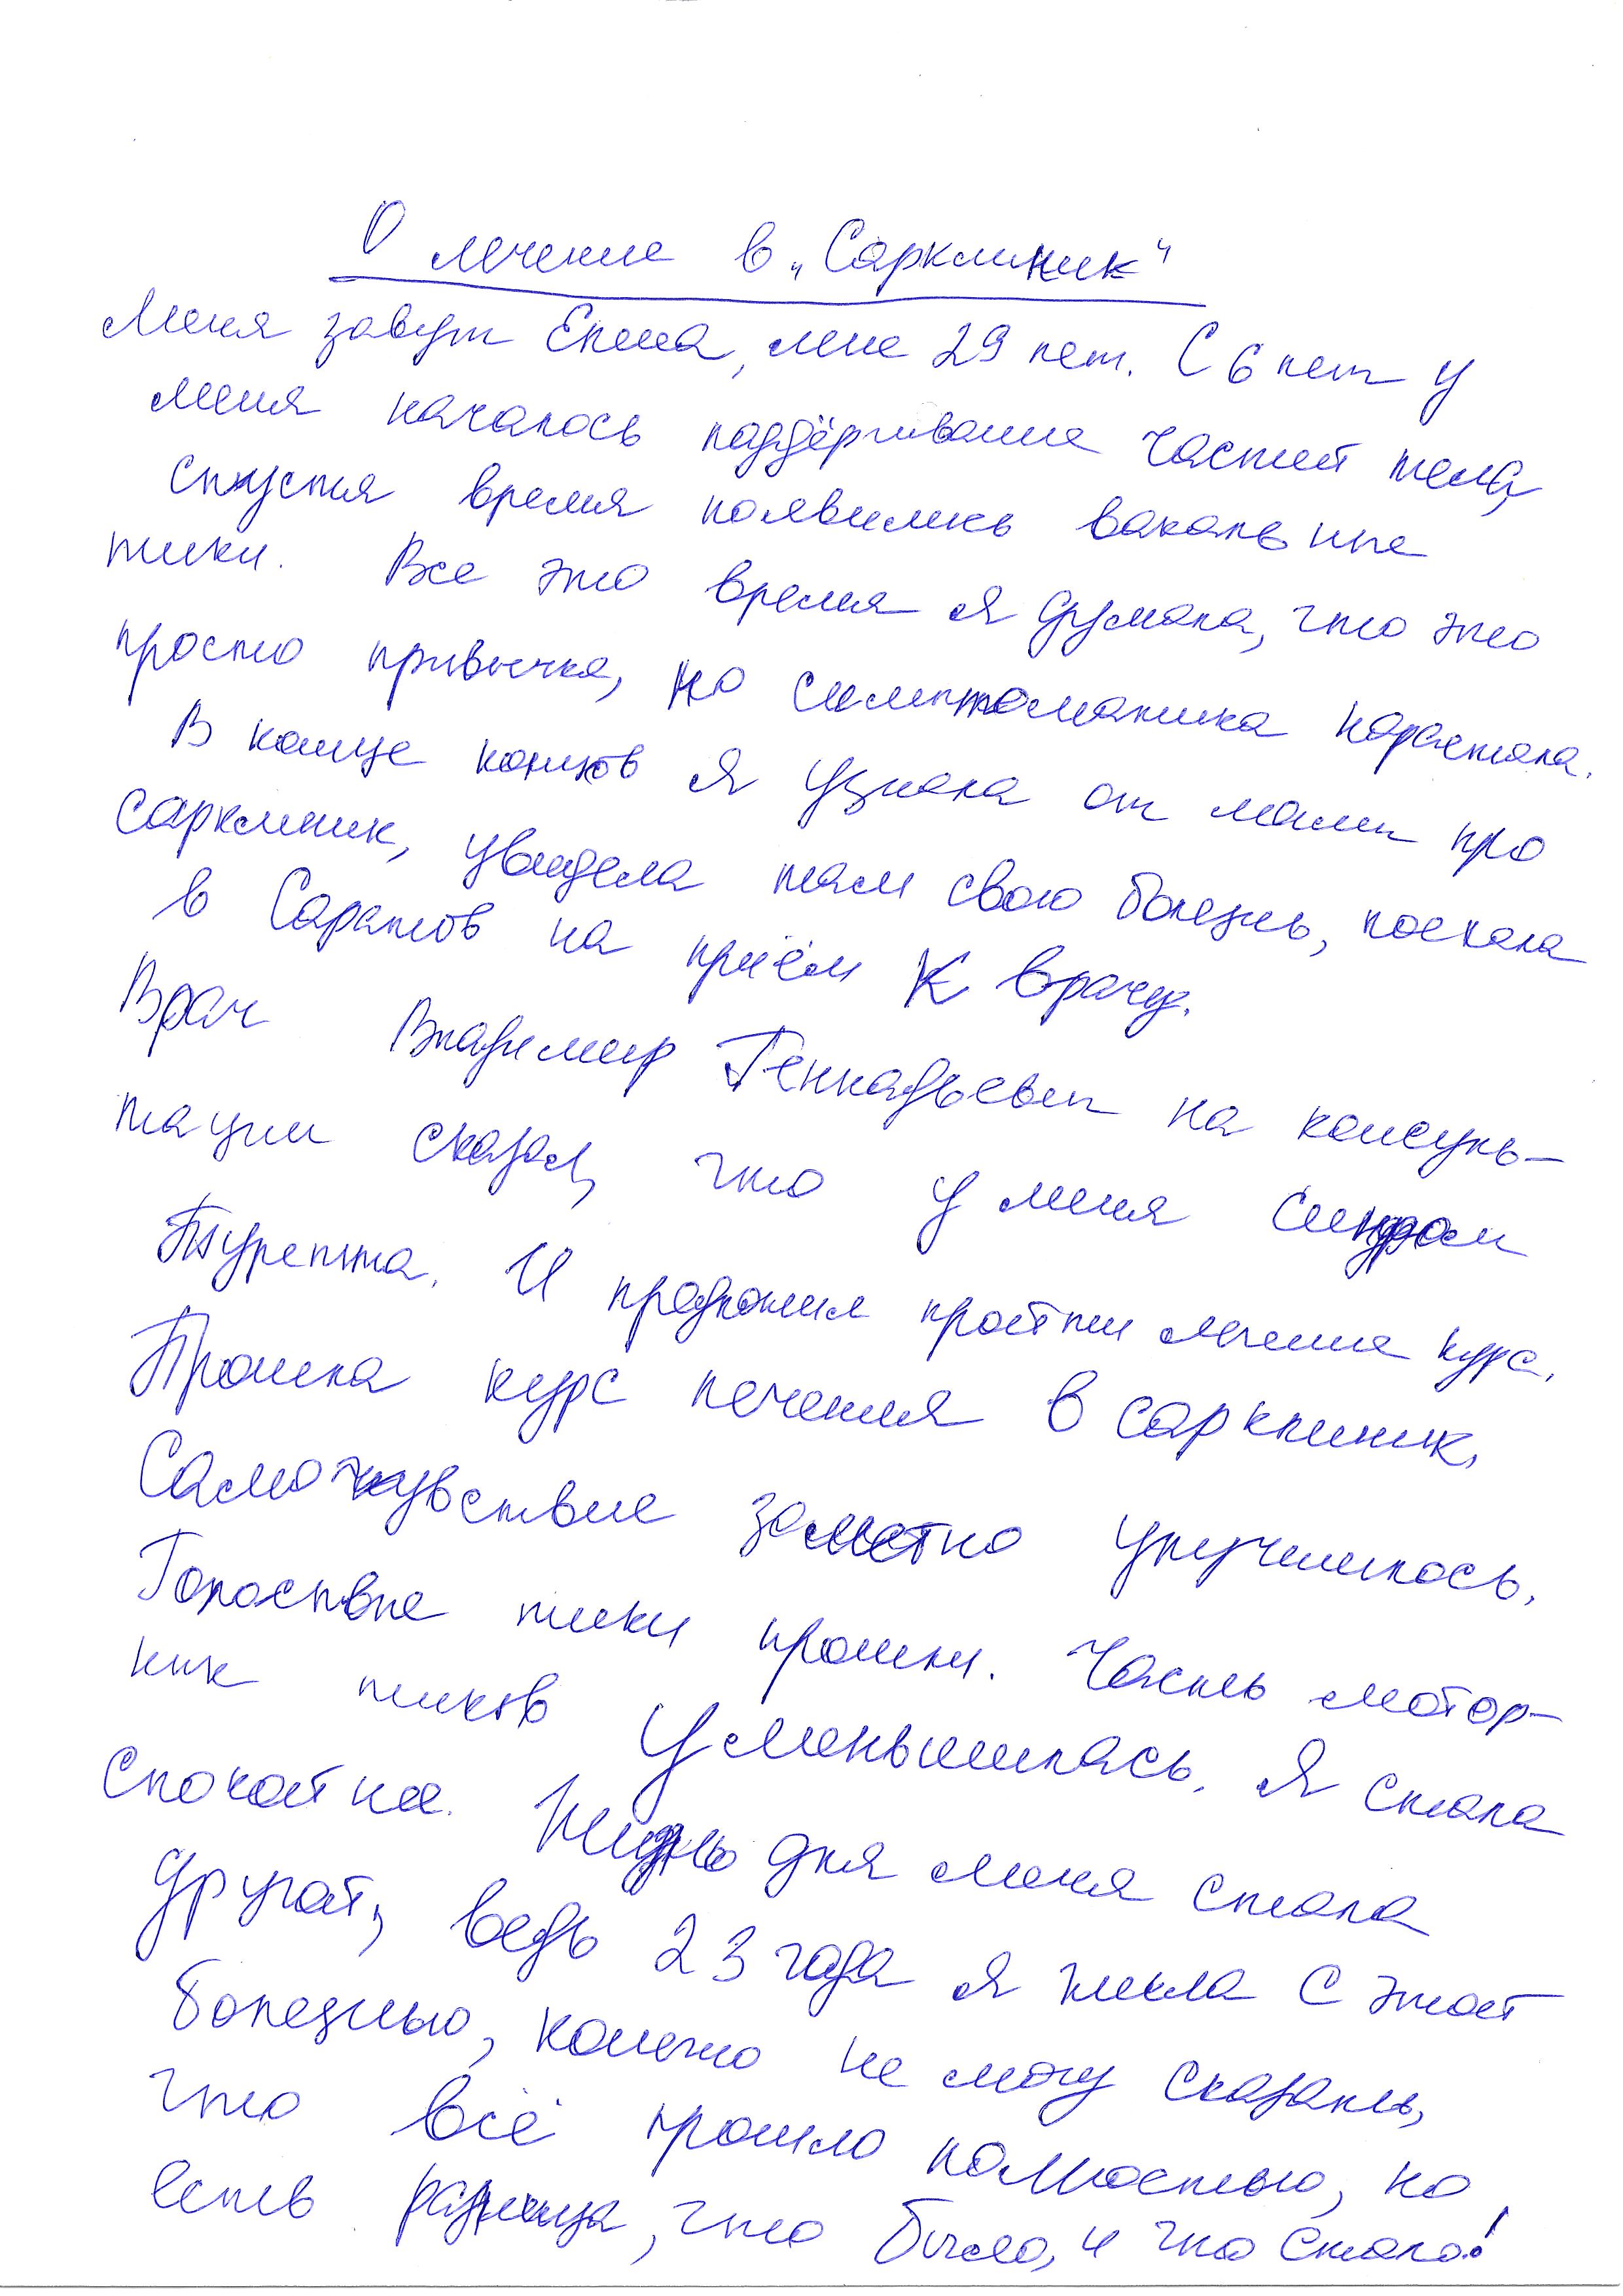 О лечение в „Сарклиник“
Меня зовут Елена, мне 29 лет. С 6 лет у
меня началось паддёргивание частей тела,
спустя время появились вакальные
тики. Все это время я думала, что это
просто привычка, но симптоматика нарастала.
В конце концов я узнала от мамы про
сарклиник, увидела там свою болезнь, поехала
в Саратов на приём к врачу.
Врач Владимир Геннадьевич на консуль-
тации сказал, что у меня синдром
Туретта. И предложил пройти лечение курс.
Прошла курс лечения в сарклиник.
Самочувствие заметно улучшилось.
Голосовые тики прошли. Часть мотор-
ных тиков уменьшилась. Я стала
спокойнее. Жизнь для меня стала
другой, ведь 23 года я жила с этой
болезнью, конечно не могу сказать,
что всё прошло полностью, но
есть разница, что было, и что стало!